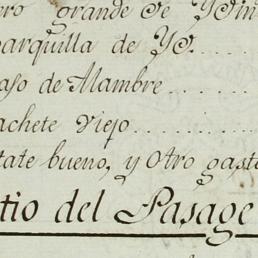 ero grande de
arquilla de Yd.......
aso de Alambre........
achete Viejo..........
tate bueno, y Otro gasta
tio del Pasage